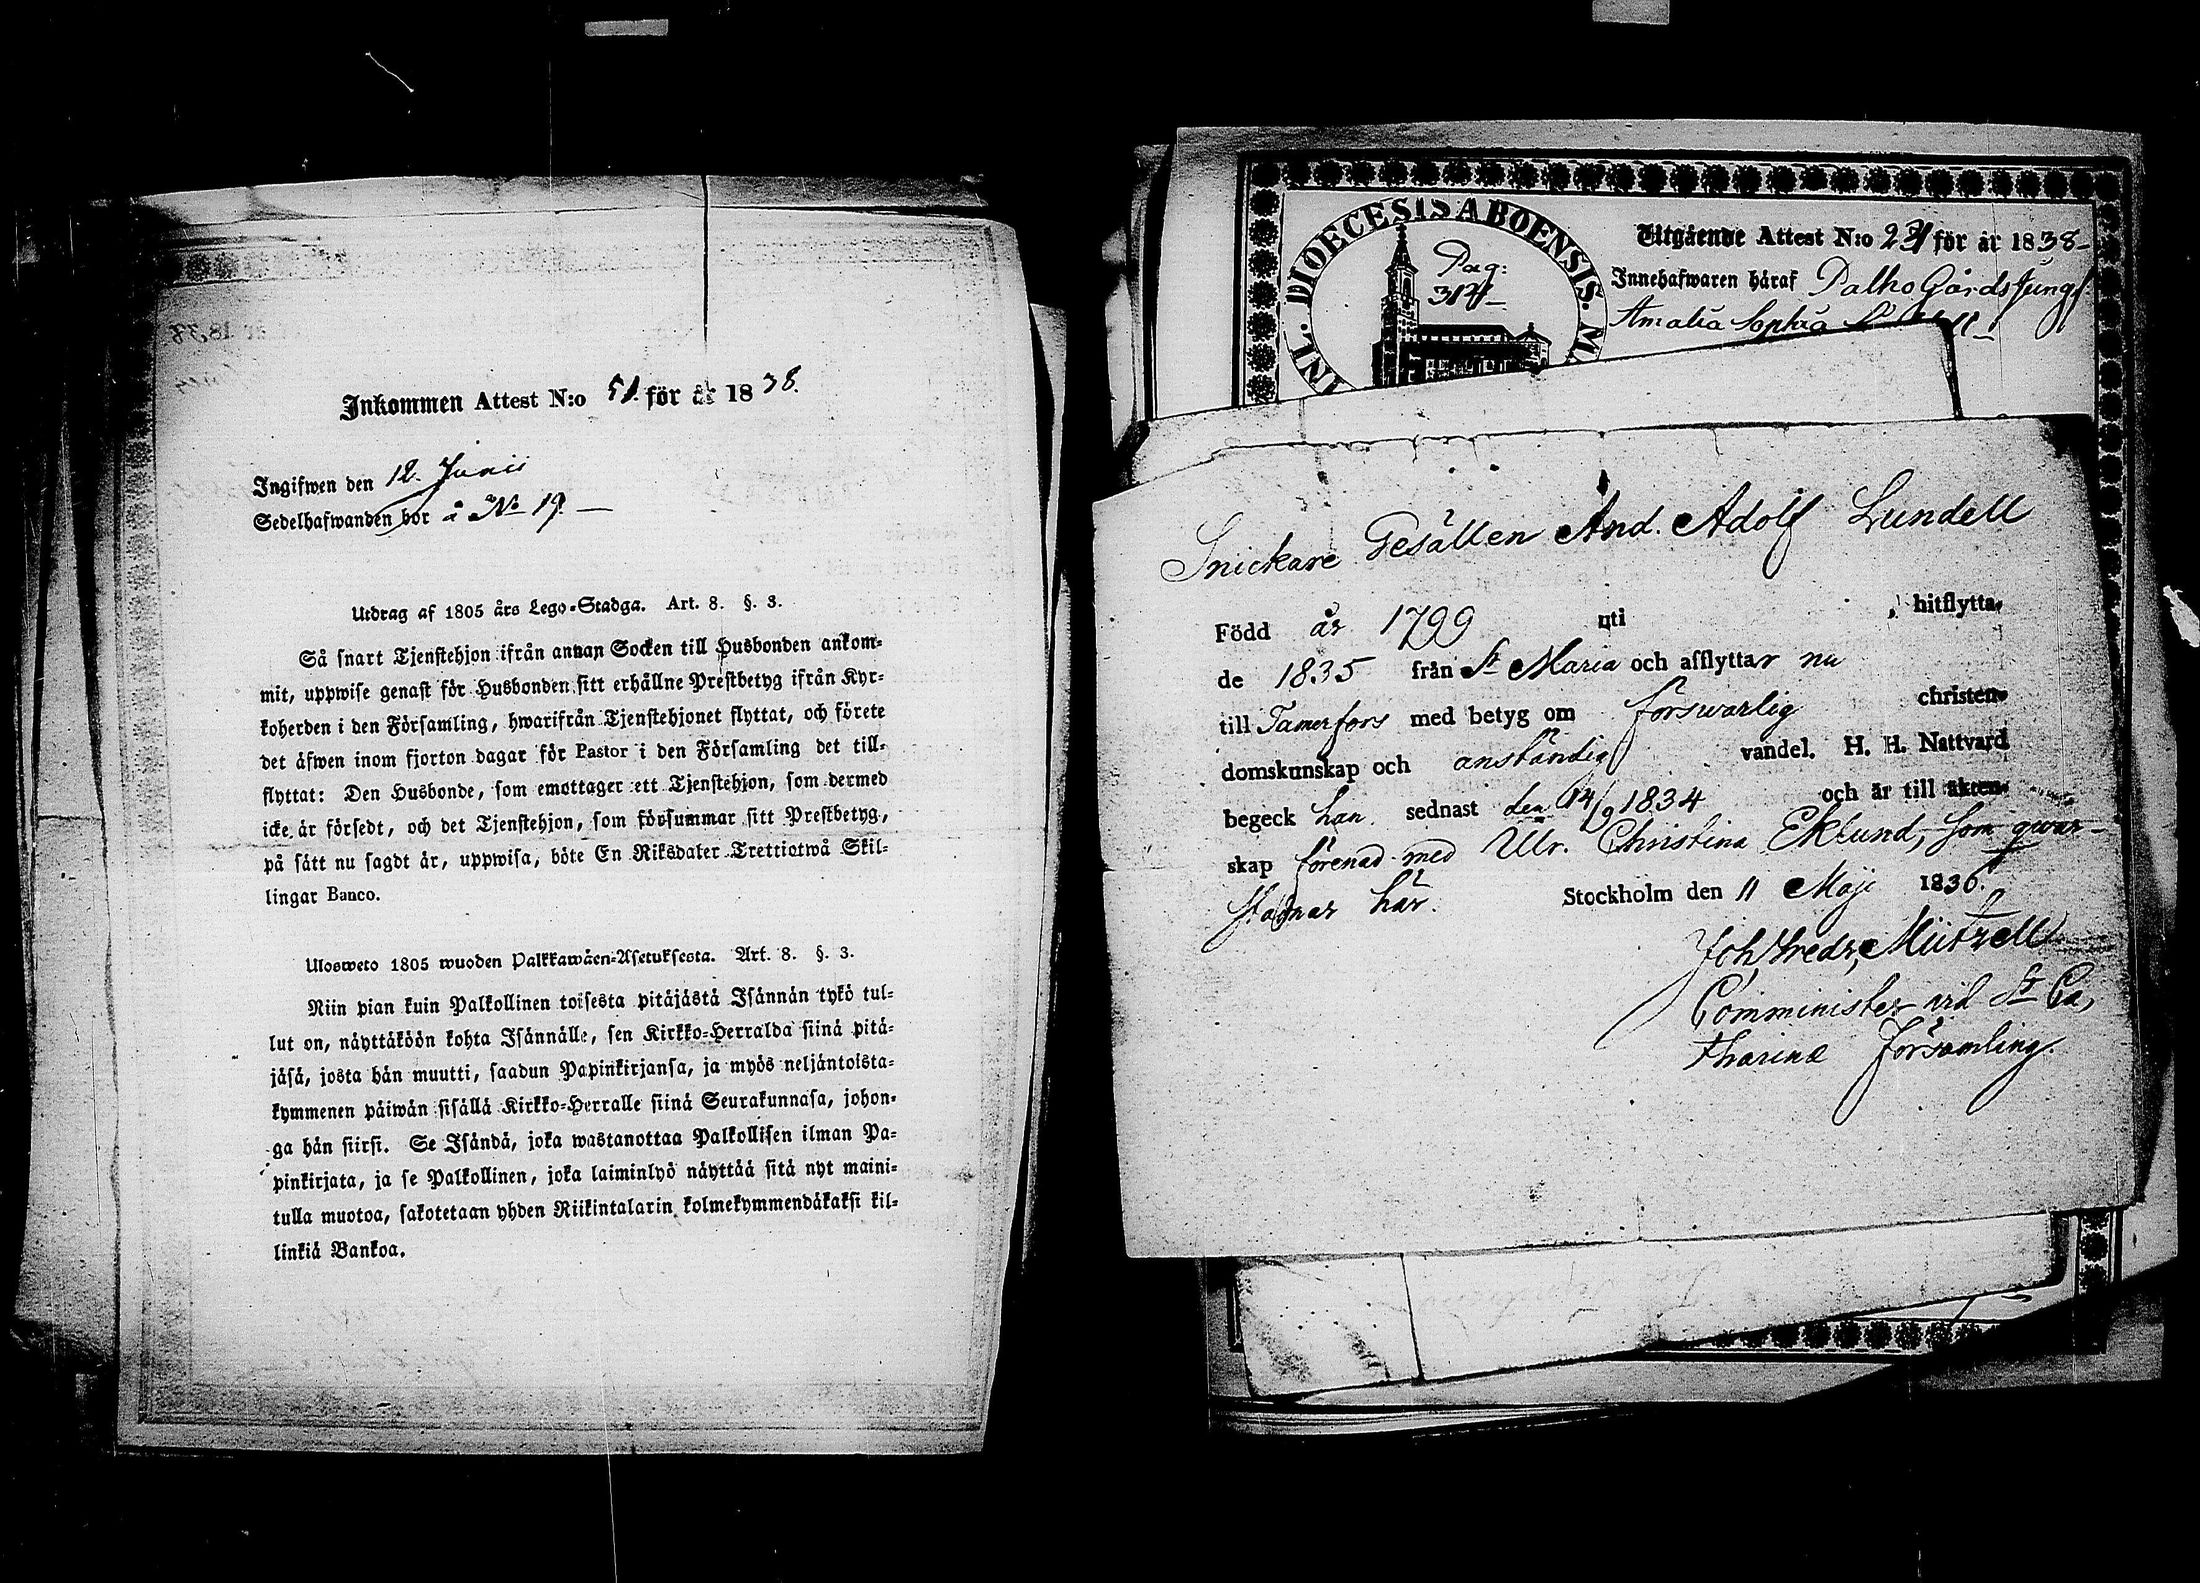 Inkommen Attest N:o 51. för år 1838.
Ingifwen den 12. Junii
Sedelhafwanden bor å No 19. —
Utdrag af 1805 års Lego-Stadga. Art. 8. §. 3.
Så snart Tjenstehjon ifrån annan Socken till Husbonden ankom-
mit, uppwise genast för Husbonden sitt erhållne Prestbetyg ifrån Kyr-
koherden i den Församling, hwarifrån Tjenstehjonet flyttat, och förete
det äfwen inom fjorton dagar för Pastor i den Församling det till-
flyttat: Den Husbonde, som emottager ett Tjenstehjon, som dermed
icke är försedt, och det Tjenstehjon, som försummar sitt Prestbetyg,
på sätt nu sagdt är, uppwisa, böte En Riksdaler Trettiotwå Skil-
lingar Banco.
Ulosweto 1805 wuoden Palkkawäen-Asetuksesta. Art. 8. §. 3.
Niin pian kuin Palkollinen toisesta pitäjästä Isännän tykö tul-
lut on, näyttäköön kohta Isännälle, sen Kirkko-Herralda siinä pitä-
jäsä, josta hän muutti, saadun Papinkirjansa, ja myös neljäntoista-
kymmenen päiwän sisällä Kirkko-Herralle siinä Seurakunnasa, johon-
ga hän siirsi. Se Isändä, joka wastanottaa Palkollisen ilman Pa-
pinkirjata, ja se Palkollinen, joka laiminlyö näyttää sitä nyt maini-
tulla muotoa, sakotetaan yhden Riikintalarin kolmekymmendäkaksi kil-
linkiä Bankoa.
DIOECESIS ABOENSIS.
Pag:
Utgående Attest N:o för år 1838-
Innehafwaren häraf Palho Gårds Jungf.
Amalia Sophia
Snickare Gesällen And. Adolf Lundell
Född år 1799 uti , hitflytta-
de 1835 från St Maria och afflyttar nu
till Tamerfors med betyg om förswarlig christen-
domskunskap och anständig vandel. H. H. Nattvard
begeck han sednast den 14/9 1834 och är till äkten-
skap förenad med Ulr. Christina Eklund, som qwar-
stadnar här. Stockholm den 11 Maji 1836.
Joh Fredr. Mützell
Comminister vid St Ca,
tharinæ Församling.